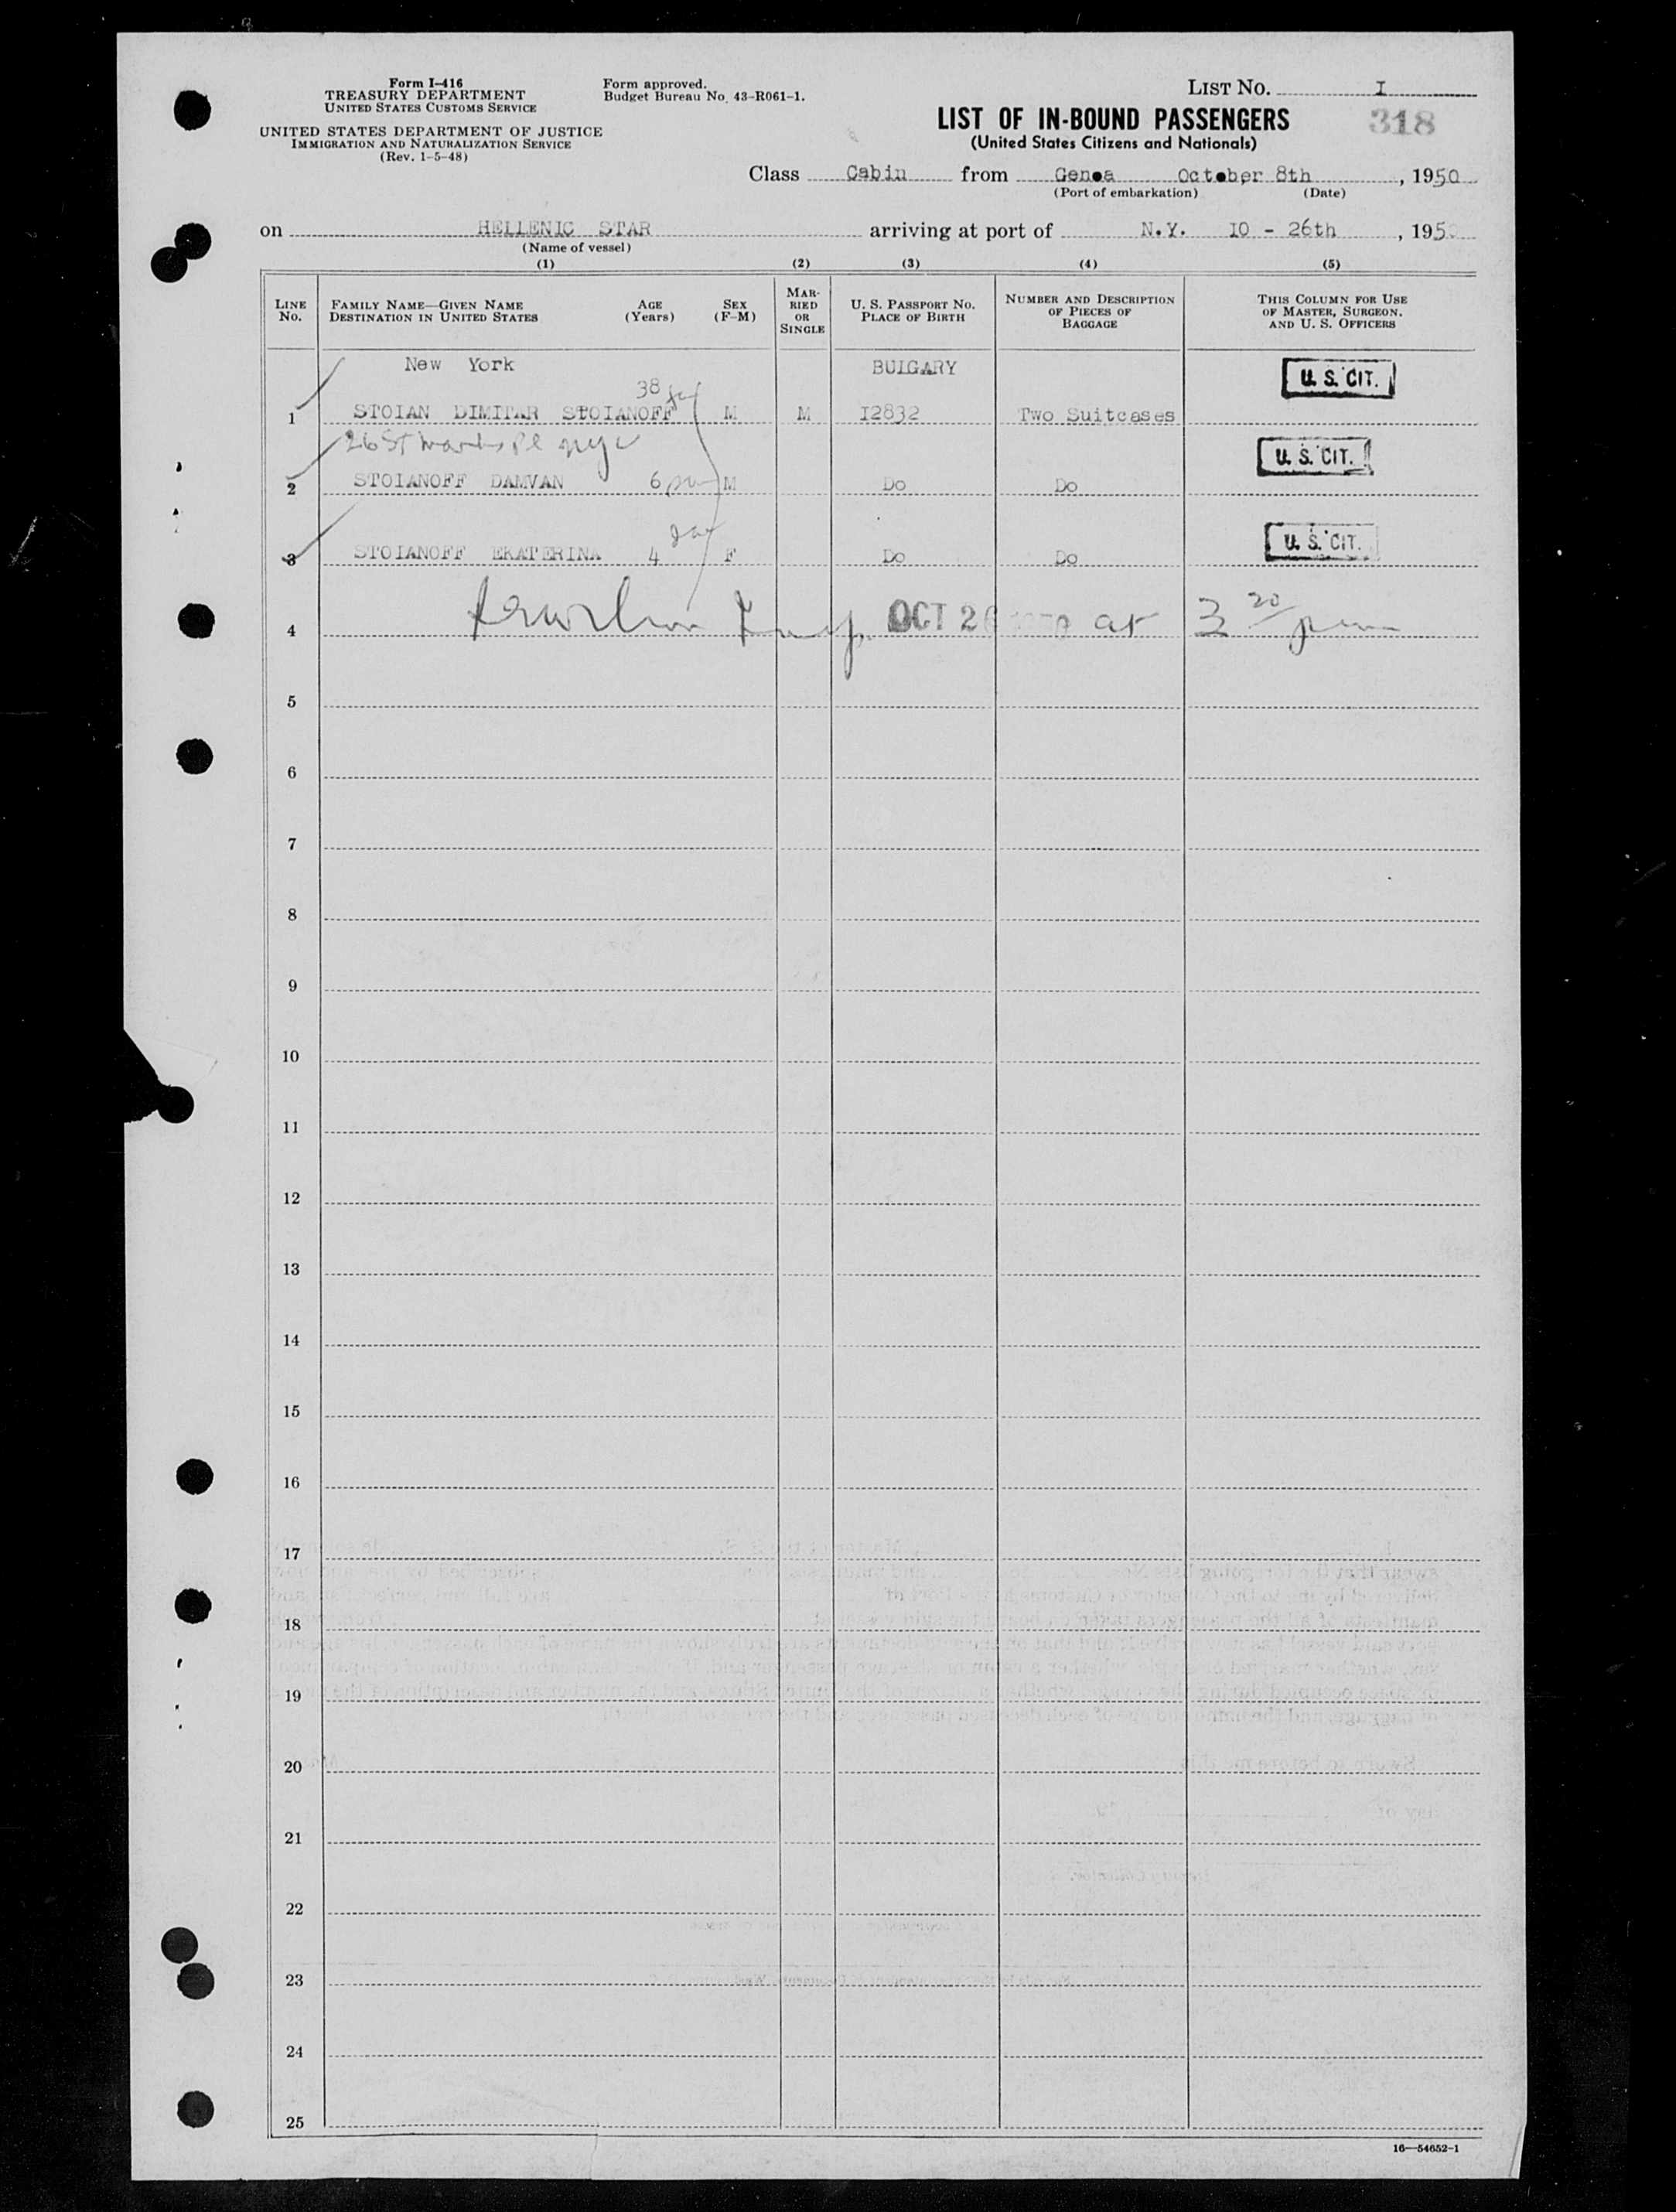 Form I-416
TREASURY DEPARTMENT
UNITED STATES CUSTOMS SERVICE
UNITED STATES DEPARTMENT OF JUSTICE
IMMIGRATION AND NATURALIZATION SERVICE
(Rev. 1-5-48)
Form approved.
Budget Bureau No. 43-R061-1.
LIST NO. I
LIST OF IN-BOUND PASSENGERS
318
(United States Citizens and Nationals)
Class Cabin from Genoa October 8th, 1950
(Port of embarkation) (Date)
on HELLENIC STAR arriving at port of N.Y. 10 - 26th, 195
(Name of vessel)
(1) (2) (3) (4) (5)
LINE No. FAMILY NAME—GIVEN NAME DESTINATION IN UNITED STATES AGE (Years) SEX (F-M) MARRIED OR SINGLE U. S. PASSPORT NO. PLACE OF BIRTH NUMBER AND DESCRIPTION OF PIECES OF BAGGAGE THIS COLUMN FOR USE OF MASTER, SURGEON, AND U. S. OFFICERS
New York BULGARY U. S. CIT.
38
1 STOIAN DIMITAR STOIANOFF M M I2832 Two Suitcases
26 St Marks Pl nyc U. S. CIT.
2 STOIANOFF DAMYAN 6 M Do Do
U. S. CIT.
3 STOIANOFF EKATERINA 4 F Do Do
4 OCT 26 at 3 20 pm
5
6
7
8
9
10
11
12
13
14
15
16
17
18
19
20
21
22
23
24
25
16—54652-1